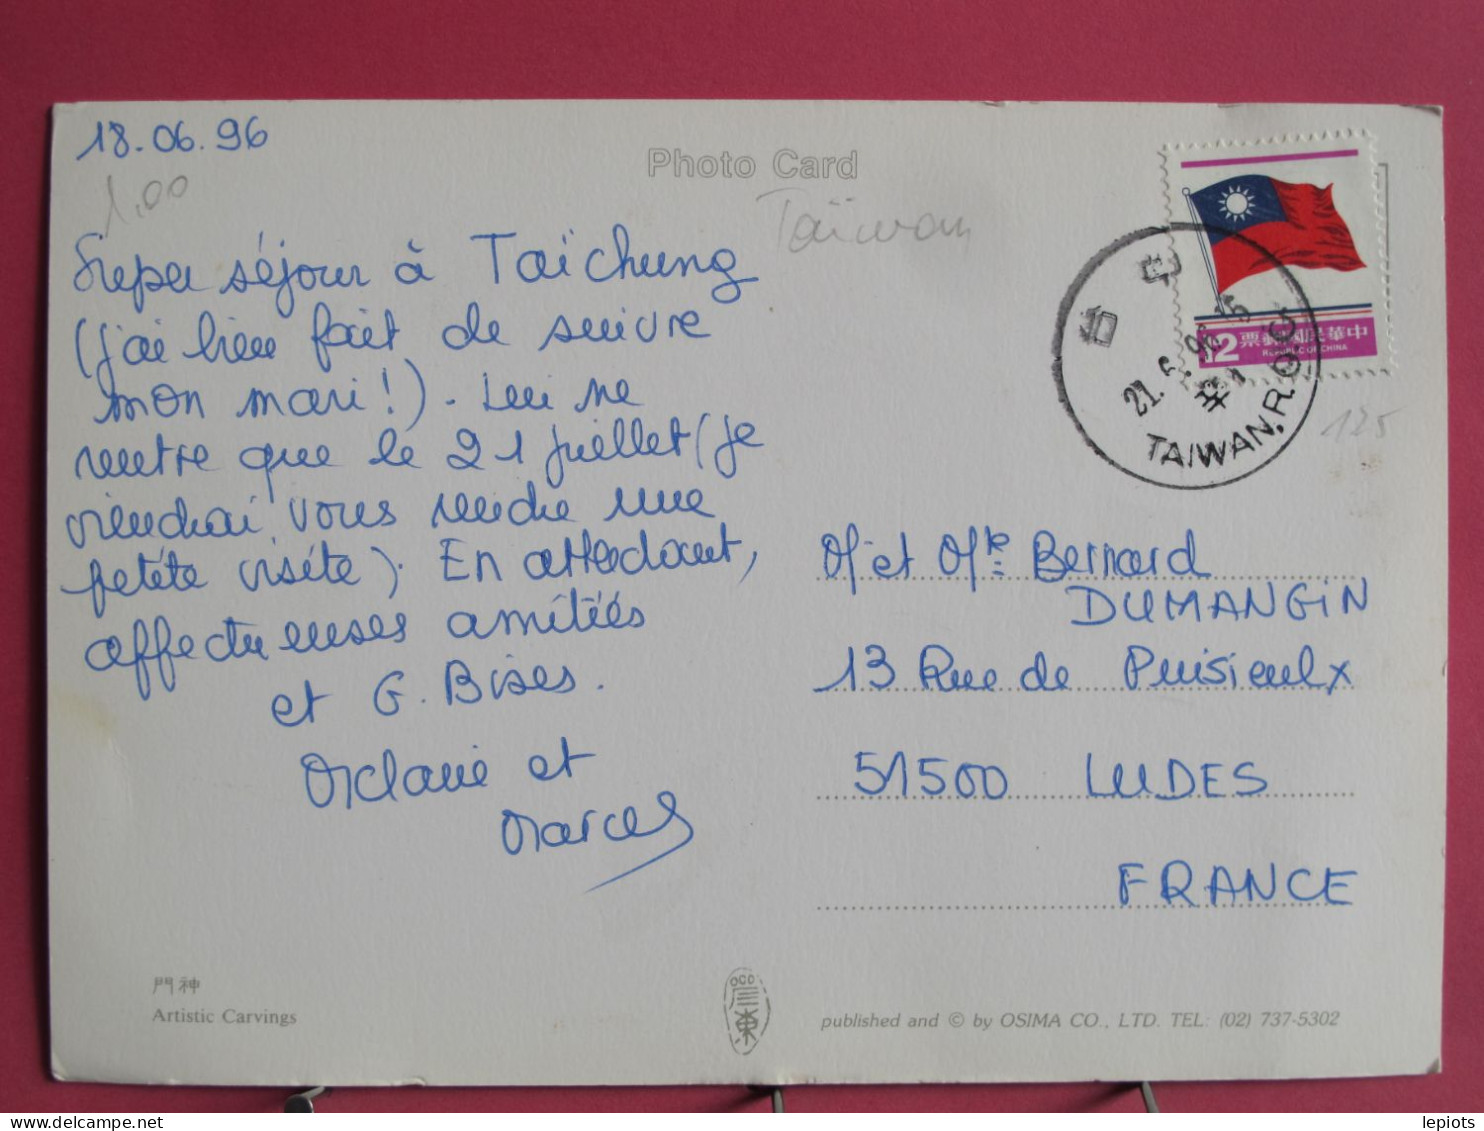 18.06.96
1,00
Photo Card
Taïwan
Super séjour à Taïchung
(j'ai bien fait de suivre
mon mari!). Lui ne
rentre que le 21 juillet (je
viendrai vous rendre une
petite visite). En attendant,
affectueuses amitiés
et G. Bises.
et
Marcel
中華民國郵票
12
REPUBLIC OF CHINA
台中
21.6.96
TAIWAN, R.O.C.
125
M. et Mme Bernard
DUMANGIN
13 Rue de Puisieulx
51500 LUDES
FRANCE
門神
Artistic Carvings
published and © by OSIMA CO., LTD. TEL: (02) 737-5302
lepiots